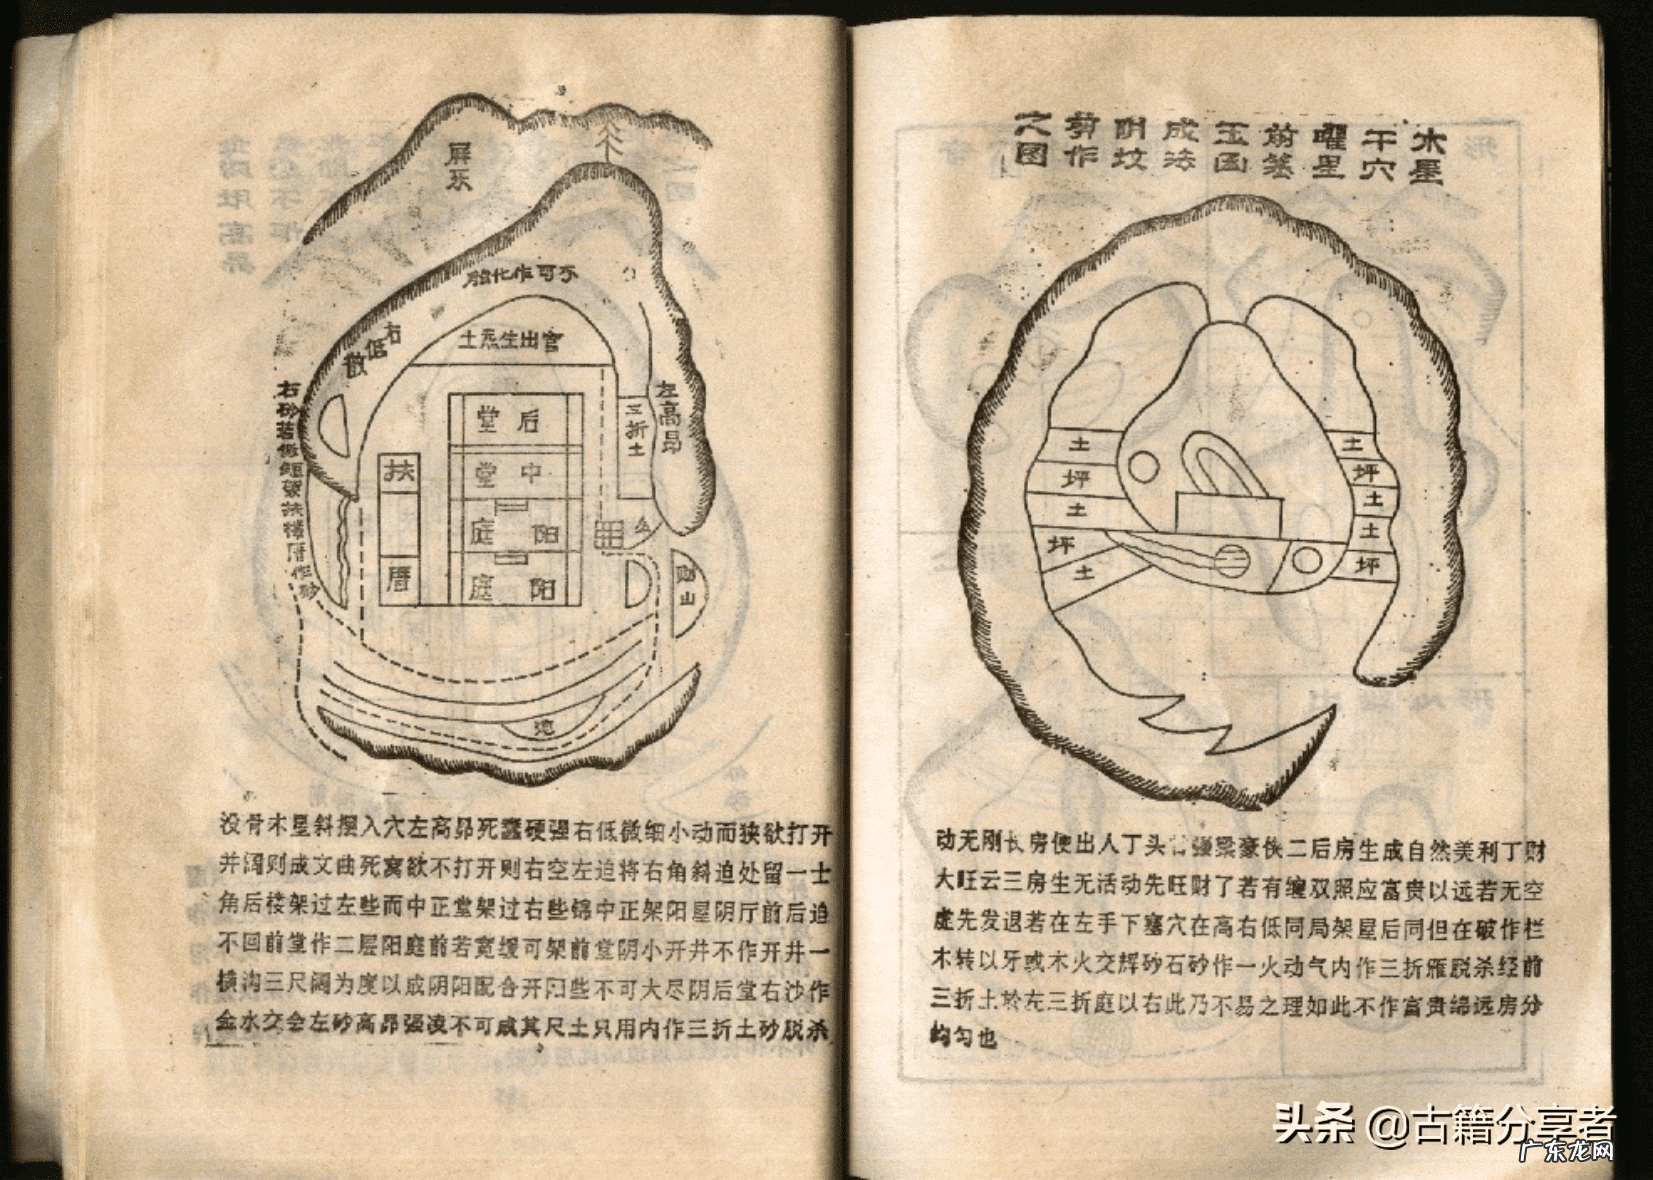 屏
右低微
土炁生出官
胎化作可不
左高昂
三折土
后堂
中堂
阳庭
阳庭
扶
厝
山
没骨木星斜摆入穴左高昂死蠢硬强右低微细小动而狭欲打开
并阔则成文曲死窝欲不打开则右空左迫将右角斜迫处留一士
角后楼架过左些而中正堂架过右些锦中正架阳屋阴厅前后迫
不回前堂作二层阳庭前若宽缓可架前堂阴小开井不作开井一
横沟三尺阔为度以成阴阳配合开阳些不可大尽阴后堂右沙作
金水交会左砂高昂强凌不可咸其尺土只用内作三折土砂脱杀
木星
干穴
曜星
前篷
玉函
成法
阴坟
剪作
之图
土
坪
土
坪
土
土
坪
土
土
坪
动无刚长房便出人丁头强梁豪侠二后房生成自然美利丁财
大旺云三房生无活动先旺财了若有缠双照应富贵以远若无空
虚先发退若在左手下塞穴在高右低同局架屋后同但在破作栏
木转以牙或木火交辉砂石砂作一火动气内作三折雁脱杀经前
三折土於左三折庭以右此乃不易之理如此不作富贵绵远房分
均匀也
头条 @古籍分享者
广东龙网